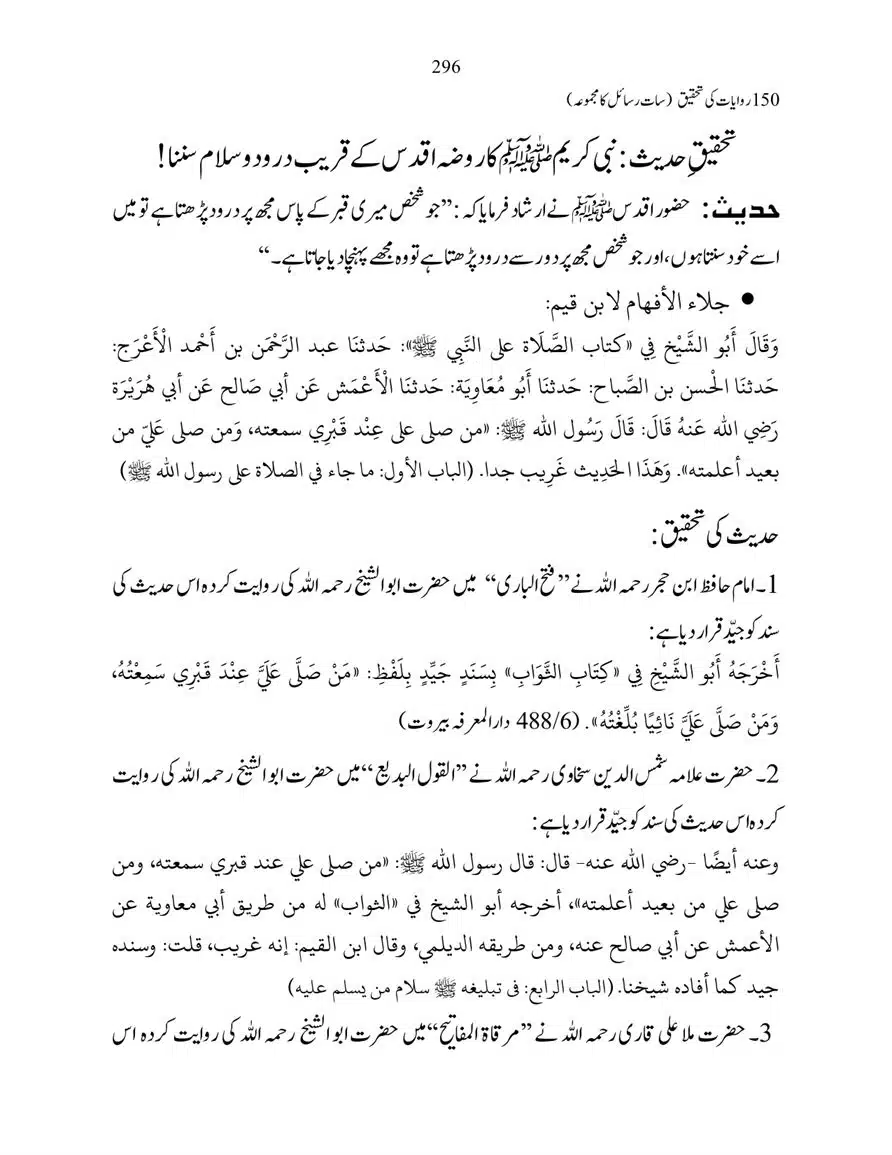 296
150 روایات کی تحقیق (سات رسائل کا مجموعہ)
تحقیقِ حدیث: نبی کریم ﷺ کا روضہ اقدس کے قریب درود وسلام سننا!
حدیث: حضور اقدس ﷺ نے ارشاد فرمایا کہ: ”جو شخص میری قبر کے پاس مجھ پر درود پڑھتا ہے تو میں
اسے خود سنتا ہوں، اور جو شخص مجھ پر دور سے درود پڑھتا ہے تو وہ مجھے پہنچا دیا جاتا ہے۔“
• جلاء الأفهام لابن قيم:
وَقَالَ أَبُو الشَّيْخ فِي «كتاب الصَّلَاة على النَّبِي ﷺ»: حَدثنَا عبد الرَّحْمَن بن أَحْمد الْأَعْرَج:
حَدثنَا الْحسن بن الصَّباح: حَدثنَا أَبُو مُعَاوِيَة: حَدثنَا الْأَعْمَش عَن أبي صَالح عَن أبي هُرَيْرَة
رَضِي الله عَنهُ قَالَ: قَالَ رَسُول الله ﷺ: «من صلى على عِنْد قَبْرِي سمعته، وَمن صلى عَليّ من
بعيد أعلمته». وَهَذَا الحَدِيث غَرِيب جدا. (الباب الأول: ما جاء في الصلاة على رسول الله ﷺ)
حدیث کی تحقیق:
1۔ امام حافظ ابن حجر رحمہ اللہ نے ”فتح الباری“ میں حضرت ابو الشیخ رحمہ اللہ کی روایت کردہ اس حدیث کی
سند کو جیّد قرار دیا ہے:
أَخْرَجَهُ أَبُو الشَّيْخِ فِي «كِتَابِ الثَّوَابِ» بِسَنَدٍ جَيِّدٍ بِلَفْظِ: «مَنْ صَلَّى عَلَيَّ عِنْدَ قَبْرِي سَمِعْتُهُ،
وَمَنْ صَلَّى عَلَيَّ نَائِيًا بُلِّغْتُهُ». (488/6 دار المعرفہ بیروت)
2۔ حضرت علامہ شمس الدین سخاوی رحمہ اللہ نے ”القول البدیع“ میں حضرت ابو الشیخ رحمہ اللہ کی روایت
کردہ اس حدیث کی سند کو جیّد قرار دیا ہے:
وعنه أيضًا -رضي الله عنه- قال: قال رسول الله ﷺ: «من صلى علي عند قبري سمعته، ومن
صلى علي من بعيد أعلمته»، أخرجه أبو الشيخ في «الثواب» له من طريق أبي معاوية عن
الأعمش عن أبي صالح عنه، ومن طريقه الديلمي، وقال ابن القيم: إنه غريب، قلت: وسنده
جيد كما أفاده شيخنا. (الباب الرابع: فى تبليغه ﷺ سلام من يسلم عليه)
3۔ حضرت ملا علی قاری رحمہ اللہ نے ”مرقاۃ المفاتیح“ میں حضرت ابو الشیخ رحمہ اللہ کی روایت کردہ اس